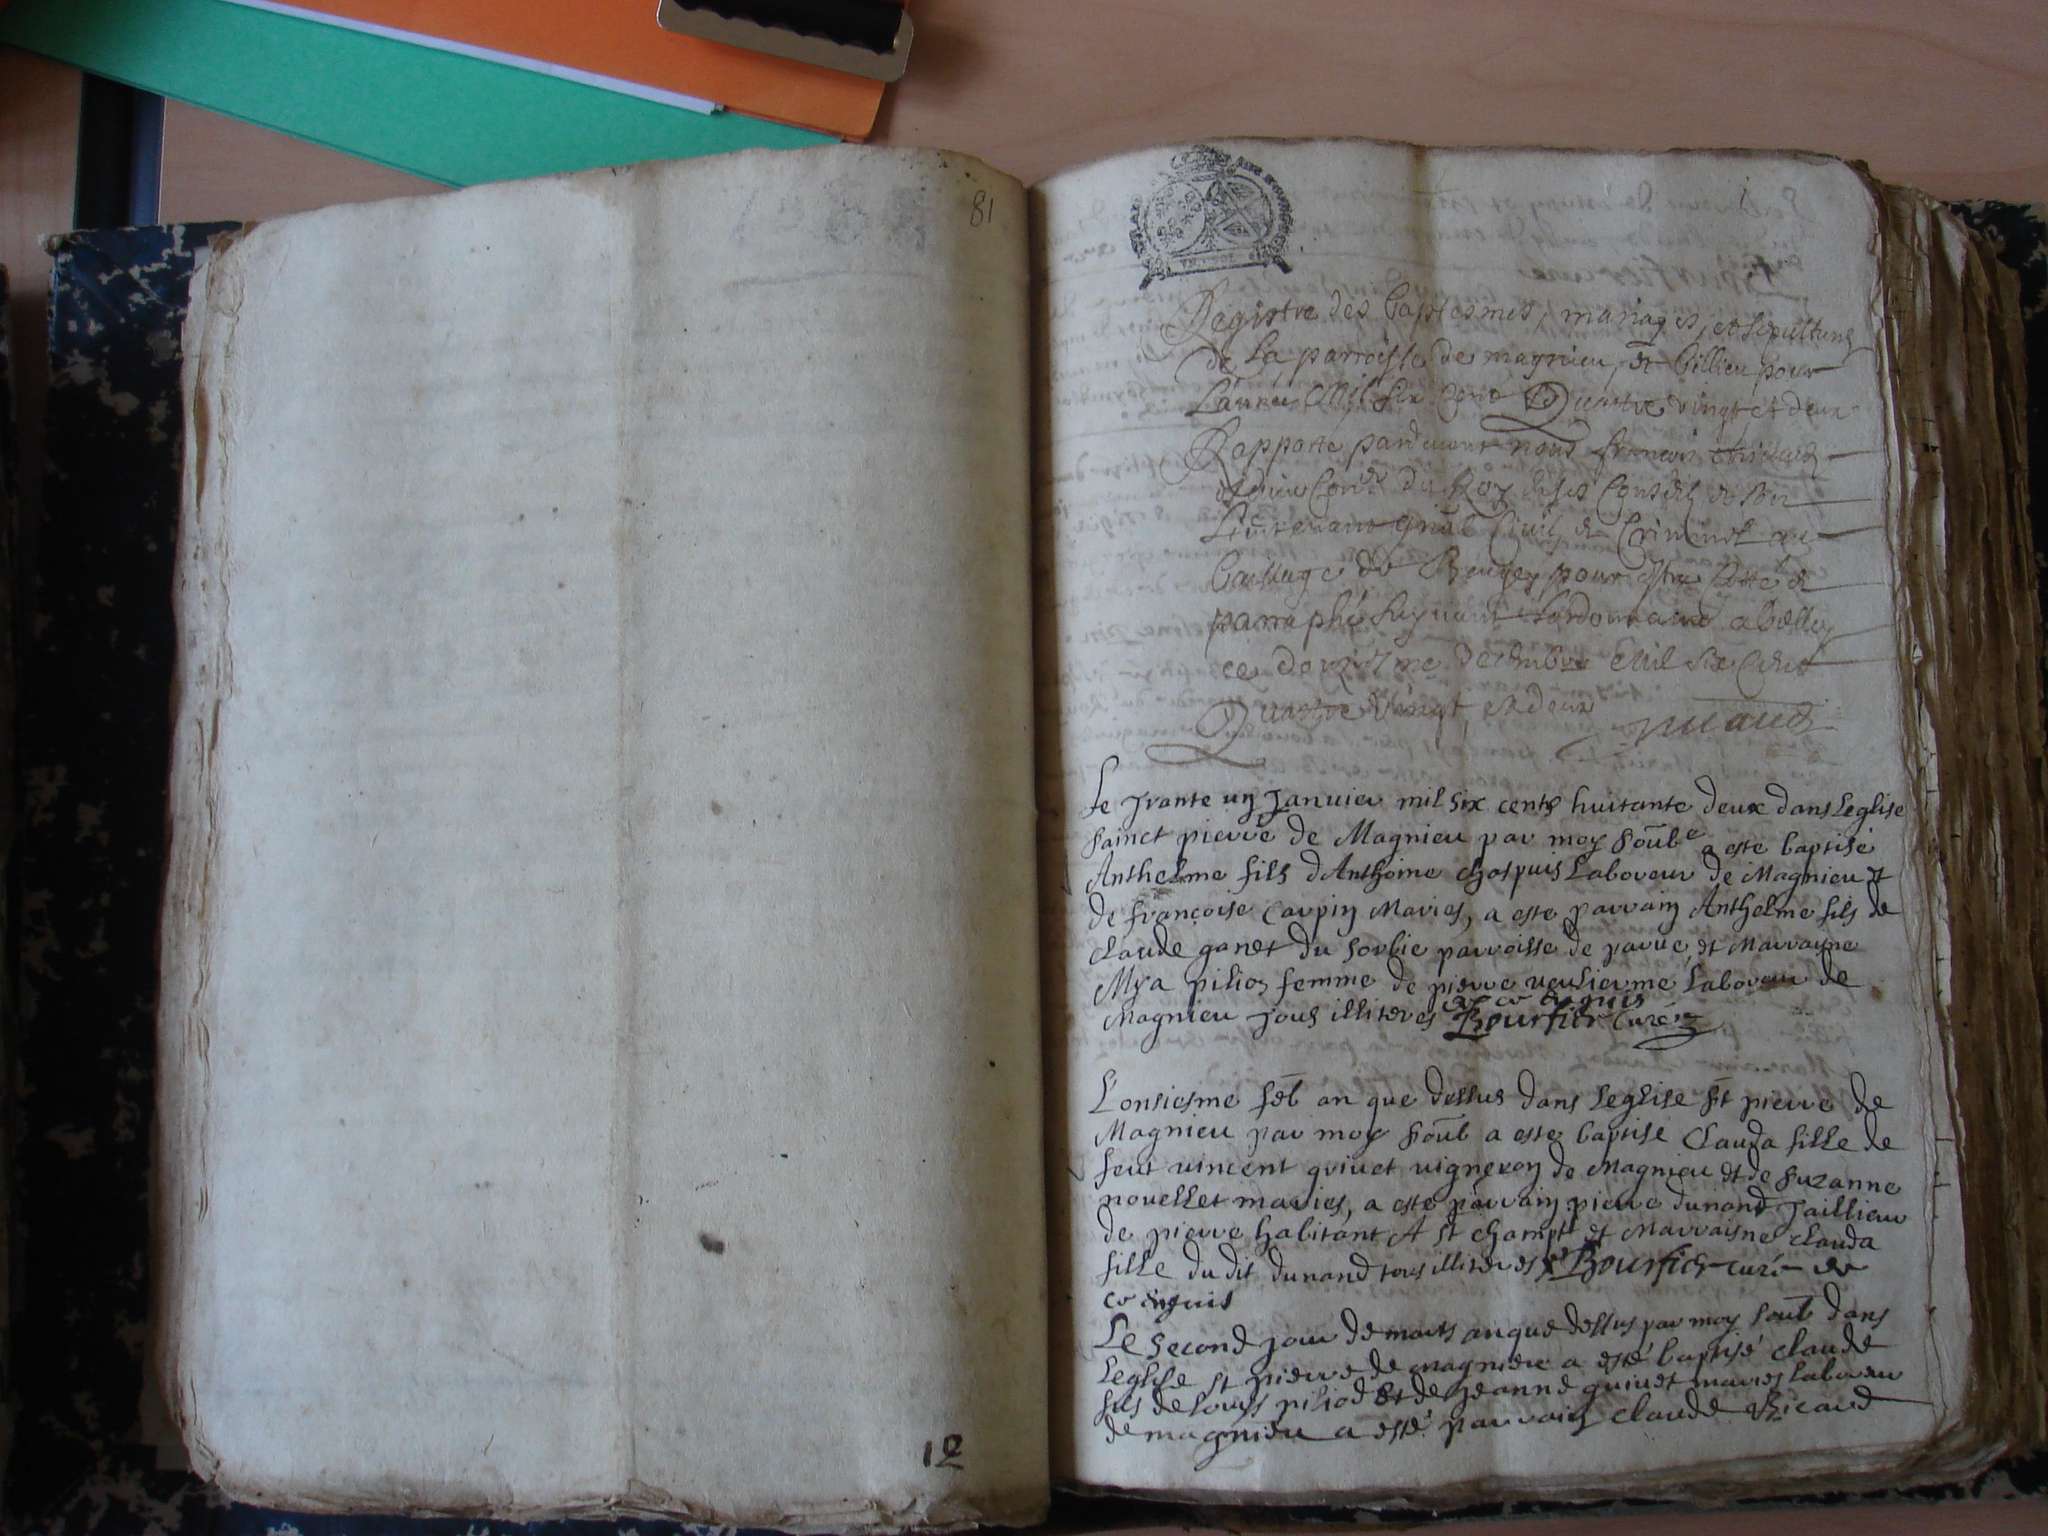 81
12
Registre des baptesmes, mariages, et sepultures
de La parroisse de magnieu, et billieu pour
Lannee Mil six Cent Quatre vingt et deux
Rapporté pardevant nous francois
du Roy en ses Conseils et son
Lieutenant gnãl Civil et Criminel au
bailliage de Beugey pour estre Cotté et
paraphé suyvant Lordonnance a belley
ce douziesme decembre Mil six Cent
Quatre Vingt et deux
Le Trante un Janvier mil six cents huitante deux dans Leglise
sainct pierre de Magnieu par moy soub^e a este baptisé
Anthelme fils dAnthoine chatpuis Laboreur de Magnieu et
de françoise Carpin Maries, a este parrain Anthelme fils de
Claude ganet du sorbie parroisse de parve, et Marrayne
Mya pilioz femme de pierre Laboreur de
Magnieu Tous illiteres de ce enquis Bourfier Curé
L'onsiesme feb an que dessus dans Leglise st pierre de
Magnieu par moy soub a este baptise Clauda fille de
feut vincent grivet vigneron de Magnieu et de suzanne
novellet maries, a este parrain pierre dunand Taillieur
de pierre habitant A st champt et Marraisne Clauda
fille du dit dunand tous illiteres Bourfier curé de
ce enquis
Le second jour de mars an que dessus par moy soub dans
Leglise st pierre de magnieu a esté baptisé claude
fils de Louys piliod Et de Jeanne guivet maries Laboreur
de magnieu a esté parrain Claude Ricard